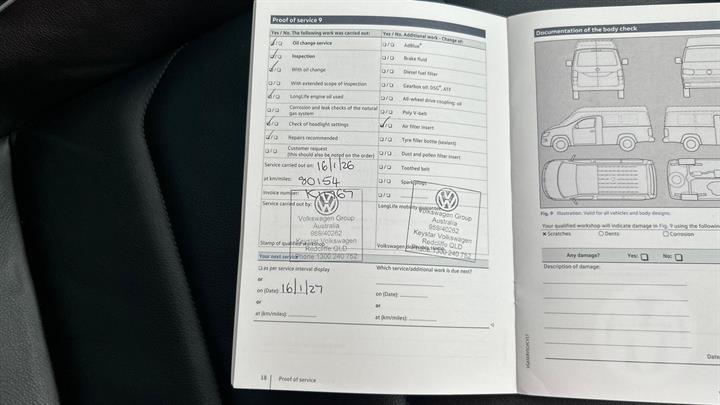 Proof of service 9
Yes / No. The following work was carried out:
☐ / ☐ Oil change service
☐ / ☐ Inspection
☐ / ☐ With oil change
☐ / ☐ With extended scope of inspection
☐ / ☐ LongLife engine oil used
☐ / ☐ Corrosion and leak checks of the natural
gas system
☐ / ☐ Check of headlight settings
☐ / ☐ Repairs recommended
☐ / ☐ Customer request
(this should also be noted on the order)
Service carried out on: 16/1/26
at km/miles: 80154
Invoice number:
Service carried out by:
Volkswagen Group
Australia
989/40262
Keystar Volkswagen
Redcliffe QLD
Phone 1300 240 752
Stamp of qualified workshop
Yes / No. Additional work - Change of:
☐ / ☐ AdBlue®
☐ / ☐ Brake fluid
☐ / ☐ Diesel fuel filter
☐ / ☐ Gearbox oil: DSG®, ATF
☐ / ☐ All-wheel drive coupling: oil
☐ / ☐ Poly V-belt
☐ / ☐ Air filter insert
☐ / ☐ Tyre filler bottle (sealant)
☐ / ☐ Dust and pollen filter insert
☐ / ☐ Toothed belt
☐ / ☐ Spark plugs
☐ / ☐
LongLife mobility guarantee
Volkswagen Group
Australia
989/40262
Keystar Volkswagen
Redcliffe QLD
Phone 1300 240 752
Your next service
☐ as per service interval display
or
on (Date): 16/1/27
or
at (km/miles):
Which service/additional work is due next?
on (Date):
or
at (km/miles):
18 Proof of service
Documentation of the body check
Fig. 9 Illustration: Valid for all vehicles and body designs.
Your qualified workshop will indicate damage in Fig. 9 using the following
× Scratches ○ Dents ☐ Corrosion
Any damage? Yes: ☐ No: ☐
Description of damage:
Date